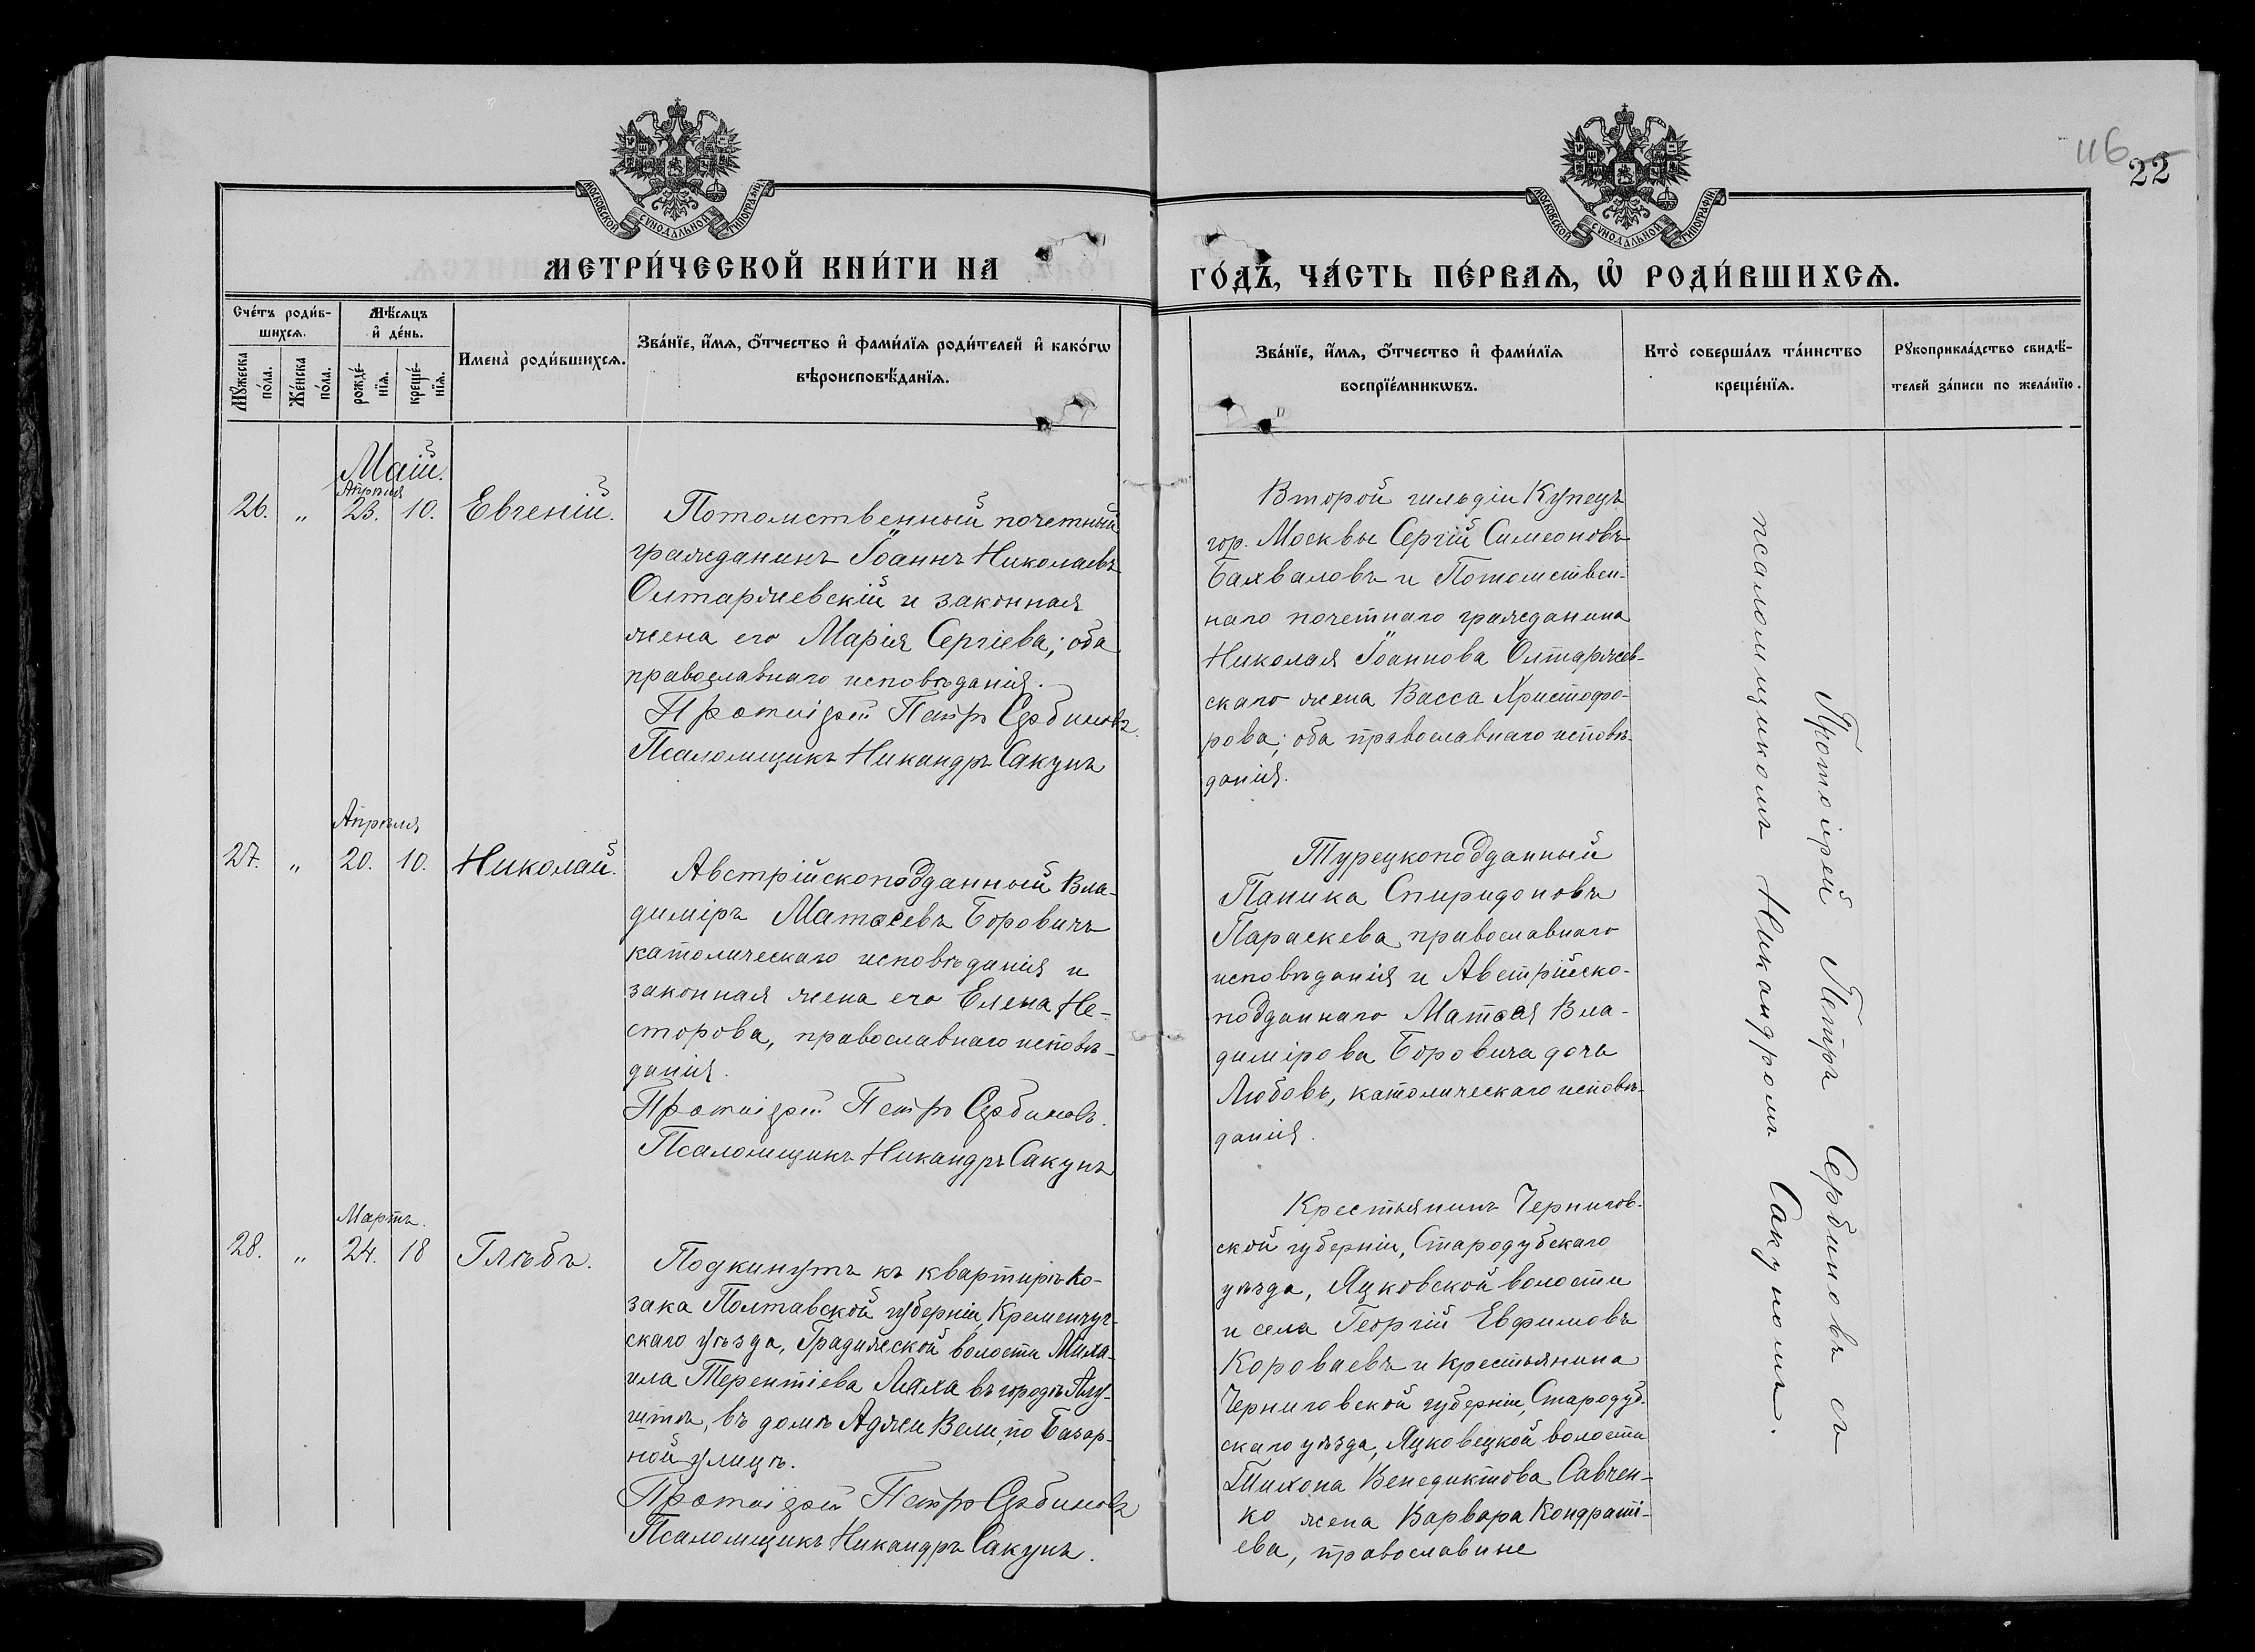 116
22
МОСКОВСКОЙ СѴНОДАЛЬНОЙ ТИПОГРАФІИ
МОСКОВСКОЙ СѴНОДАЛЬНОЙ ТИПОГРАФІИ
МЕТРИ́ЧЕСКОЙ КНИ́ГИ НА
ГО́ДЪ, ЧА́СТЬ ПЕ́РВАѦ, Ѡ҆ РОДИ́ВШИХСѦ.
Сче́тъ роди́в-
шихсѧ.
Мꙋ́жеска по́ла.
Же́нска по́ла.
Мѣ́сѧцъ
и҆ де́нь.
рожде́-
нїѧ.
креще́-
нїѧ.
Имена̀ роди́вшихсѧ.
Зва́нїе, и҆́мѧ, ѻ҆́тчество и҆ фами́лїѧ роди́телей и҆ како́гѡ
вѣроисповѣ́данїѧ.
Зва́нїе, и҆́мѧ, ѻ҆́тчество и҆ фами́лїѧ
воспрїе́мникѡвъ.
Кто̀ соверша́лъ та́инство
креще́нїѧ.
Рꙋкоприкла́дство свидѣ́-
телей за́писи по жела́нїю.
Маій.
Апрѣля
26. " 23. 10. Евгеній.
Потомственный почетный
гражданинъ Іоаннъ Николаевъ
Олтаржевскій и законная
жена его Марія Сергіева; оба
православнаго исповѣданія.
Протоіерей Петръ Сербиновъ
Псаломщикъ Никандръ Сакунъ
Второй гильдіи Купецъ
гор. Москвы Сергій Симеоновъ
Бахваловъ и Потомствен-
наго почетнаго гражданина
Николая Іоаннова Олтаржев-
скаго жена Васса Христофо-
рова; оба православнаго исповѣ-
данія.
Апрѣля
27. " 20. 10. Николай.
Австрійскоподданный Вла-
диміръ Матѳеевъ Боровичъ
католическаго исповѣданія и
законная жена его Елена Не-
сторова, православнаго исповѣ-
данія.
Протоіерей Петръ Сербиновъ.
Псаломщикъ Никандръ Сакунъ
Турецкоподданный
Паника Спиридоновъ
Параскева православнаго
исповѣданія и Австрійско-
подданнаго Матѳея Вла-
димірова Боровича дочь
Любовь, католическаго исповѣ-
данія.
Мартъ.
28. " 24. 18 Глѣбъ.
Подкинутъ къ квартирѣ Ко-
зака Полтавской губерніи, Кременчуг-
скаго уѣзда, Градижской волости Миха-
ила Терентіева Ляха въ городѣ Алу-
штѣ, въ домѣ Аджи Вели, по Базар-
ной улицѣ.
Протоіерей Петръ Сербиновъ
Псаломщикъ Никандръ Сакунъ.
Крестьянинъ Чернигов-
ской губерніи, Стародубскаго
уѣзда, Яцковской волости
и села Георгій Евфимовъ
Короваевъ и крестьянина
Черниговской губерніи, Стародуб-
скаго уѣзда, Яцковецкой волости
Тихона Венедиктова Савчен-
ко жена Варвара Кондраті-
ева, православные
Протоіерей Петръ Сербиновъ съ
псаломщикомъ Никандромъ Сакуномъ.